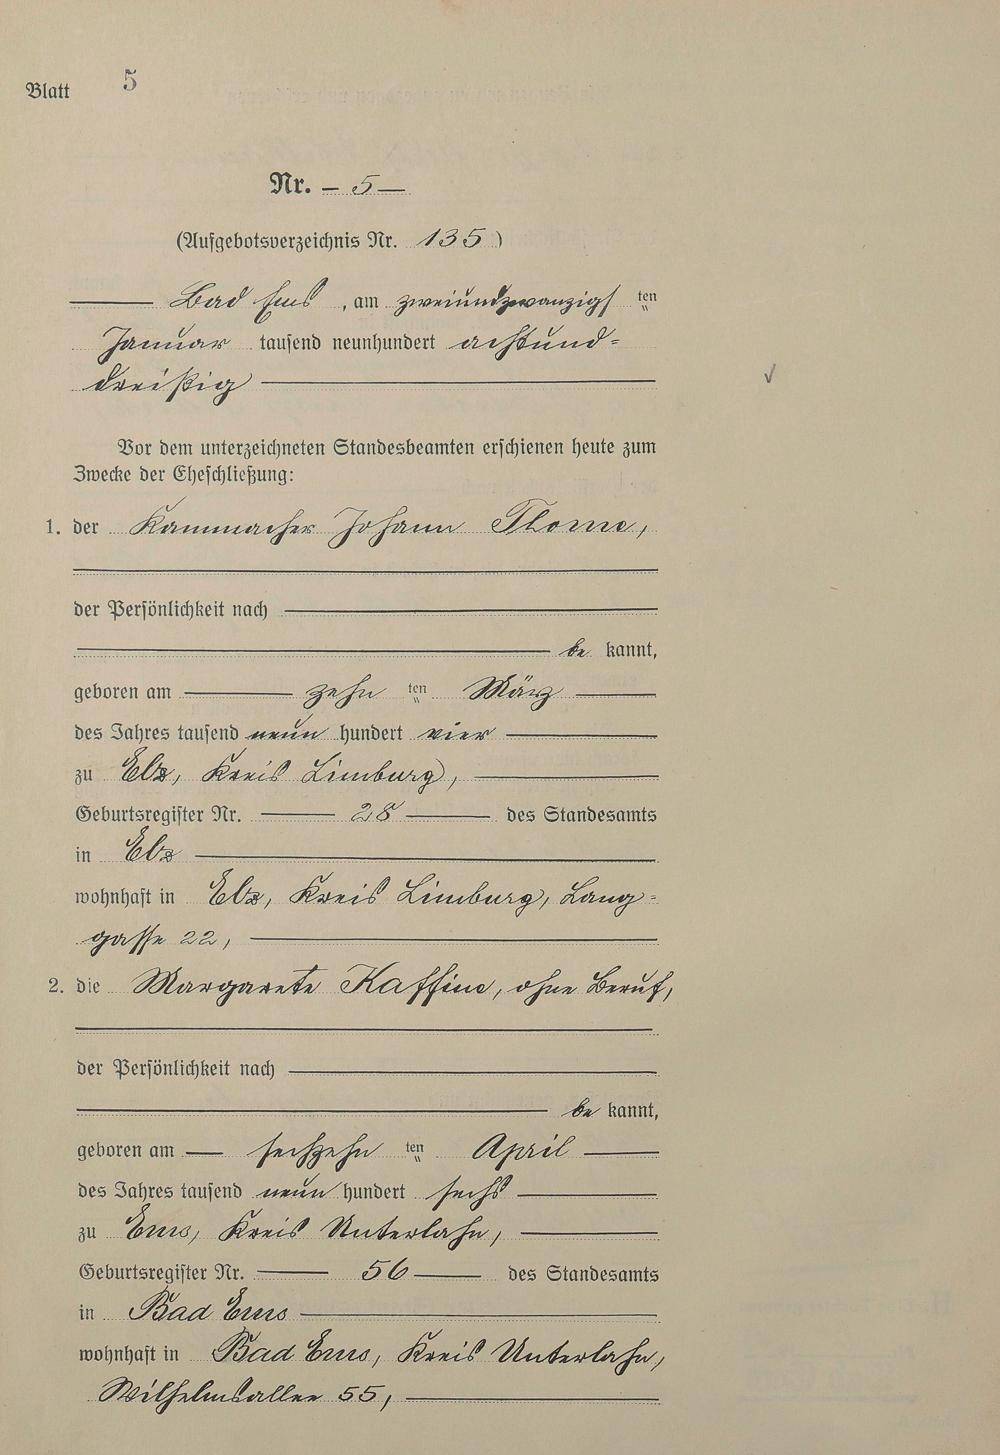 Blatt 5
Nr. – 5 —
(Aufgebotsverzeichnis Nr. 135)
Bad Ems, am zweiundzwanzigs ten
Januar tausend neunhundert achtund-
dreißig
Vor dem unterzeichneten Standesbeamten erschienen heute zum
Zwecke der Eheschließung:
1. der Kammacher Johann Thome,
der Persönlichkeit nach
be kannt,
geboren am zehn ten März
des Jahres tausend neun hundert vier
zu Elz, Kreis Limburg,
Geburtsregister Nr. 28 des Standesamts
in Elz
wohnhaft in Elz, Kreis Limburg, Lang-
gasse 22,
2. die Margarete Kaffine, ohne Beruf,
der Persönlichkeit nach
be kannt,
geboren am sechzehn ten April
des Jahres tausend neun hundert sechs
zu Ems, Kreis Unterlahn,
Geburtsregister Nr. 56 des Standesamts
in Bad Ems
wohnhaft in Bad Ems, Kreis Unterlahn,
Wilhelmsallee 55,